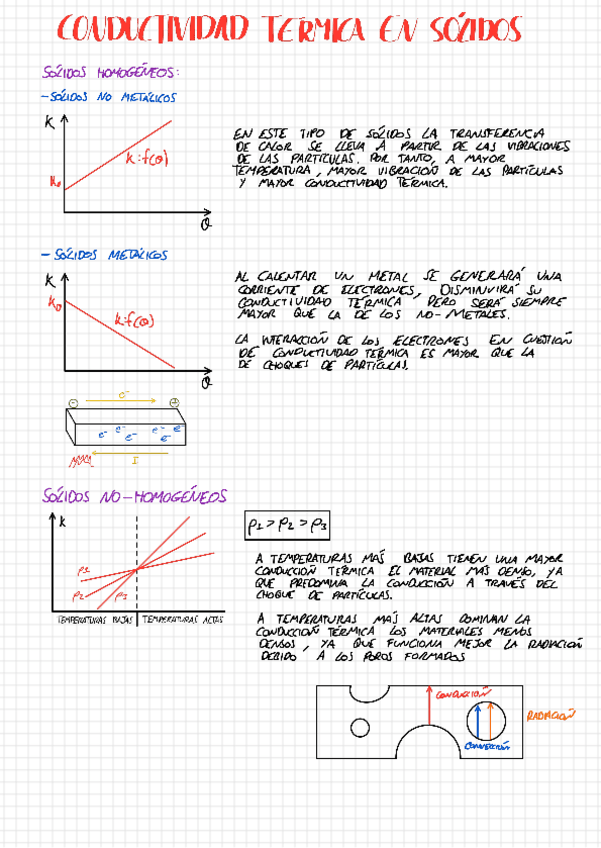 CONDUCTIVIDAD TERMICA EN SÓLIDOS
SÓLIDOS HOMOGÉNEOS:
-SÓLIDOS NO METÁLICOS
K
K₀
K:f(θ)
θ
EN ESTE TIPO DE SÓLIDOS LA TRANSFERENCIA
DE CALOR SE LLEVA A PARTIR DE LAS VIBRACIONES
DE LAS PARTÍCULAS. POR TANTO, A MAYOR
TEMPERATURA, MAYOR VIBRACIÓN DE LAS PARTÍCULAS
Y MAYOR CONDUCTIVIDAD TÉRMICA.
- SÓLIDOS METÁLICOS
K
K₀
K:f(θ)
θ
AL CALENTAR UN METAL SE GENERARÁ UNA
CORRIENTE DE ELECTRONES, DISMINUIRÁ SU
CONDUCTIVIDAD TÉRMICA, PERO SERÁ SIEMPRE
MAYOR QUE LA DE LOS NO-METALES.
LA INTERACCIÓN DE LOS ELECTRONES EN CUESTIÓN
DE CONDUCTIVIDAD TERMICA ES MAYOR QUE LA
DE CHOQUES DE PARTÍCULAS.
- e⁻ +
e⁻ e⁻ e⁻ e⁻ e e⁻
I
SÓLIDOS NO-HOMOGÉNEOS
K
ρ₂
ρ₁
TEMPERATURAS BAJAS | TEMPERATURAS ALTAS
ρ₁ > ρ₂ > ρ₃
A TEMPERATURAS MÁS BAJAS TIENEN UNA MAYOR
CONDUCCIÓN TÉRMICA EL MATERIAL MÁS DENSO, YA
QUE PREDOMINA LA CONDUCCIÓN A TRAVÉS DEL
CHOQUE DE PARTÍCULAS.
A TEMPERATURAS MÁS ALTAS DOMINAN LA
CONDUCCIÓN TÉRMICA LOS MATERIALES MENOS
DENSOS, YA QUE FUNCIONA MEJOR LA RADIACIÓN
DEBIDO A LOS POROS FORMADOS
CONDUCCIÓN
RADIACIÓN
CONVECCIÓN